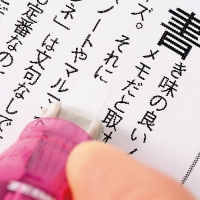 書き味の良い
ズ。メモだと取
それに
ノートやマル
ネ」は文句なしで
定番なの